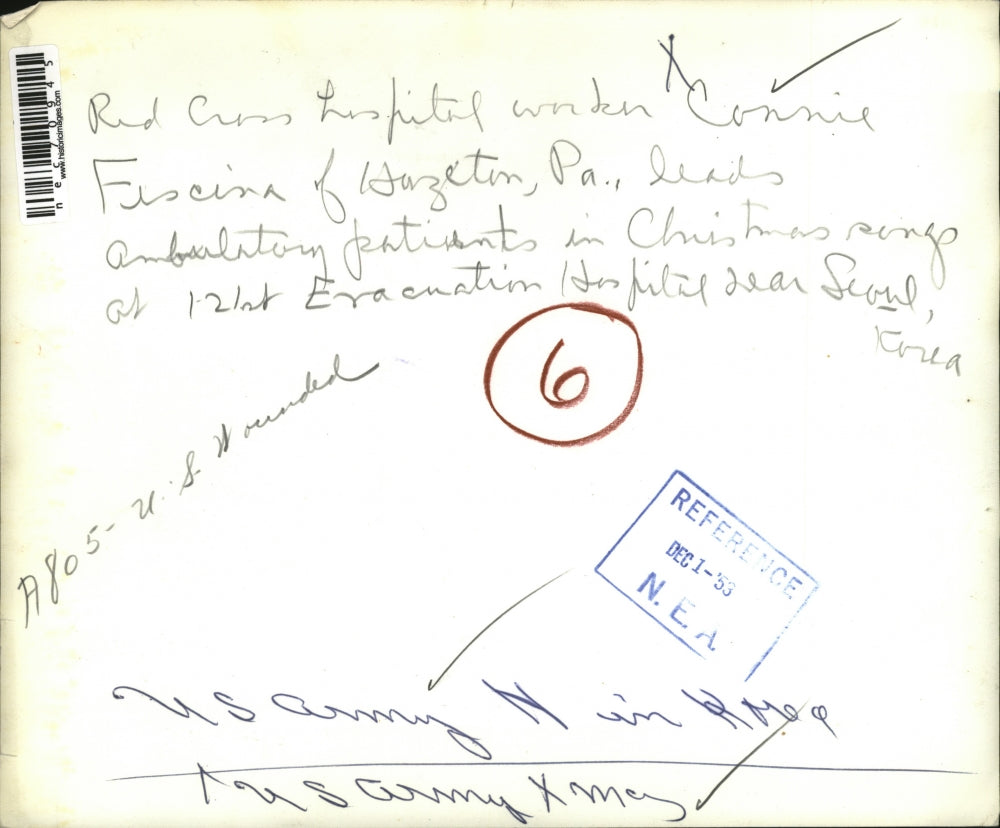 Red Cross hospital worker X Connie
Fiscina of Hazleton, Pa., leads
ambulatory patients in Christmas songs
at 121st Evacuation Hospital near Seoul,
Korea
6
A805 - U.S. Wounded
REFERENCE
DEC 1 - '53
N.E.A.
US Army W in Korea
US Army Xmas
nec70945
www.historicimages.com